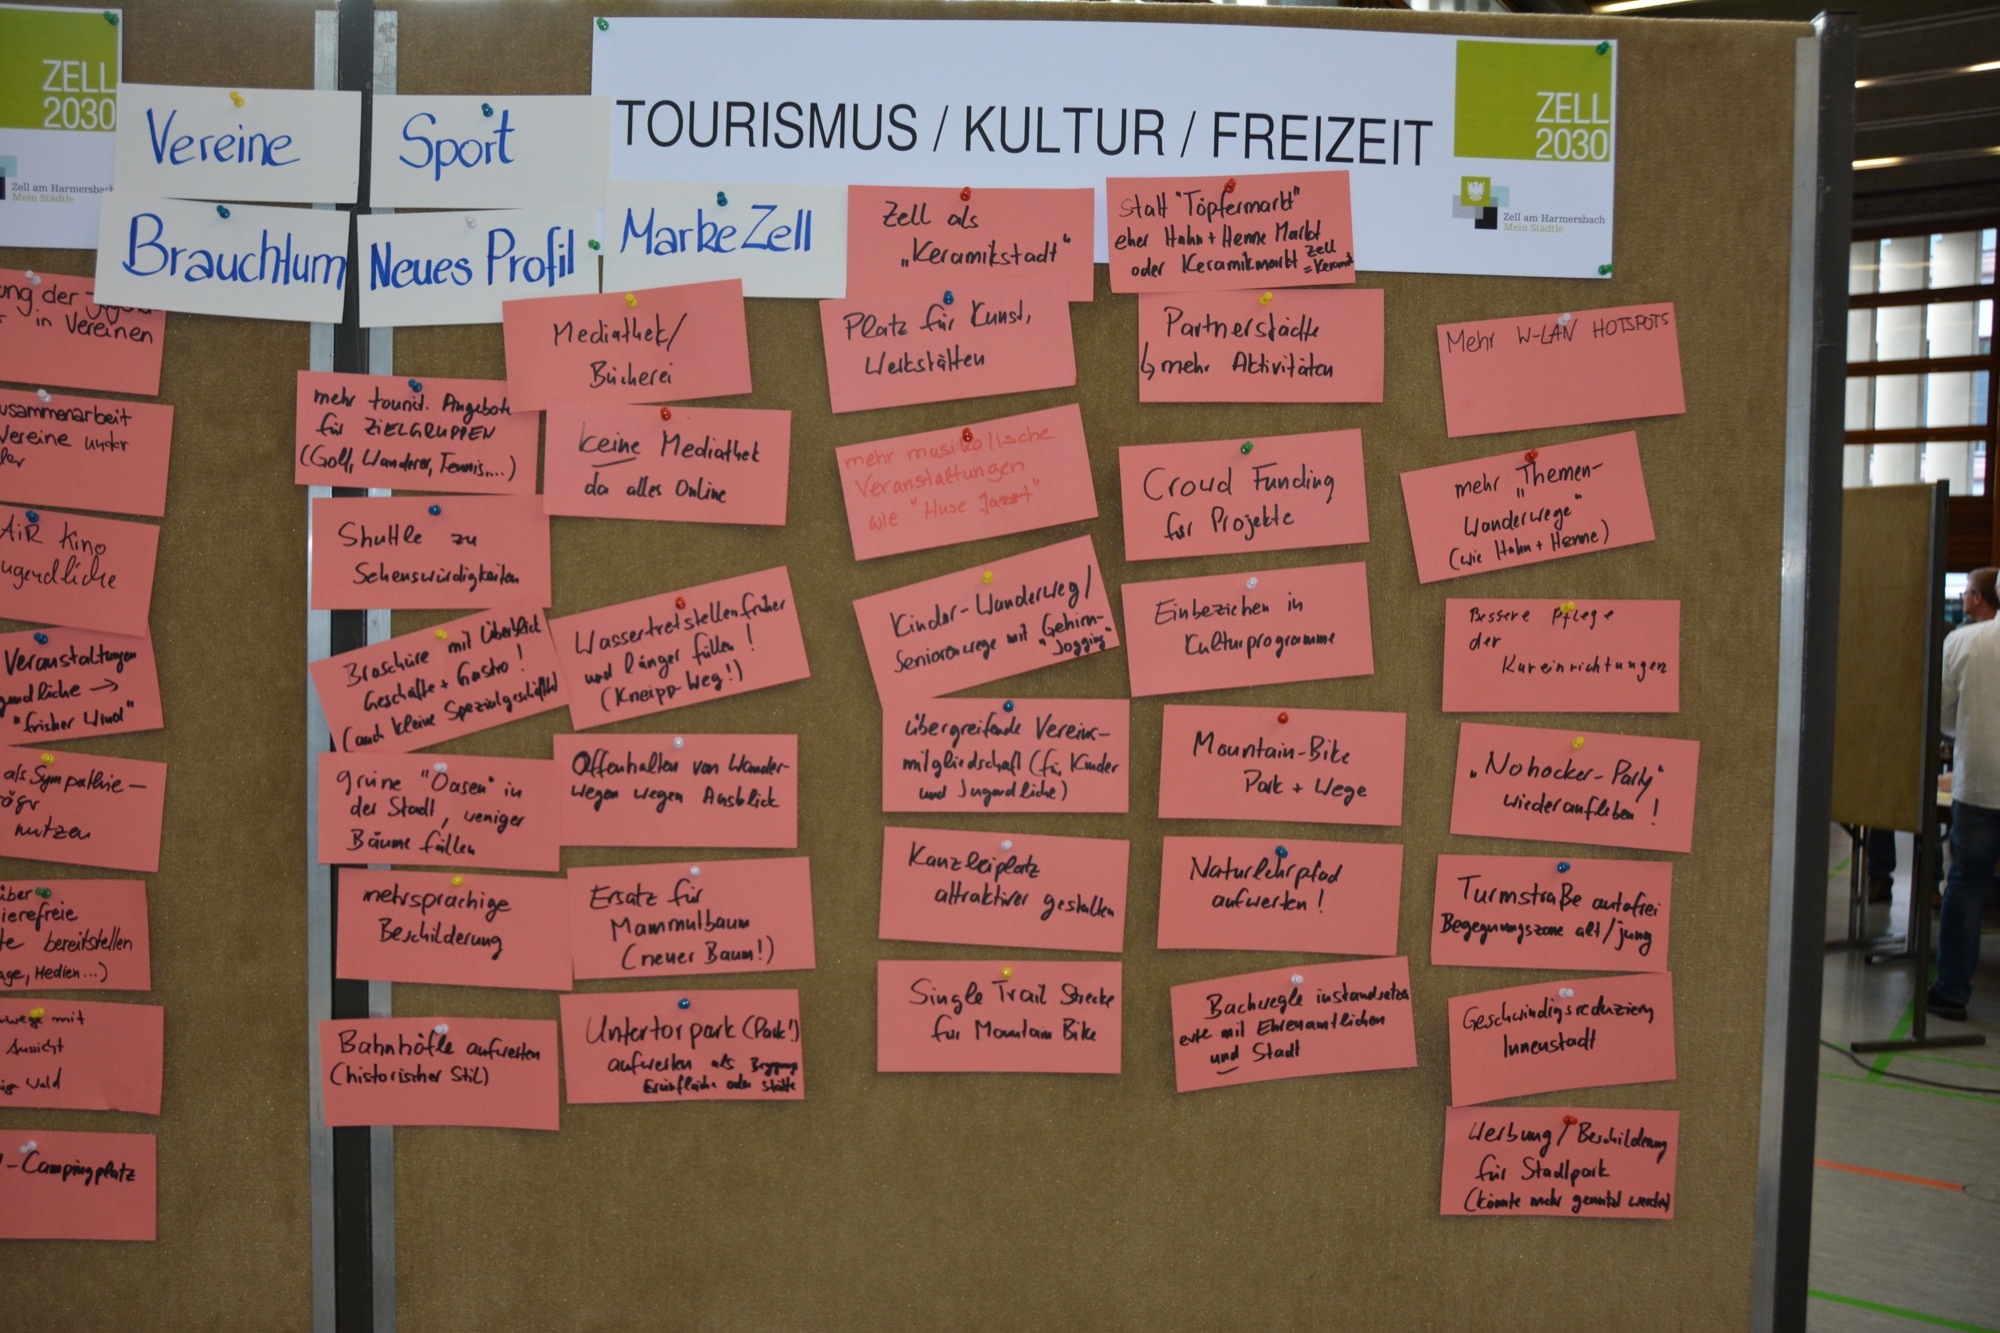 ZELL
2030
Zell am Harmersbach
Mein Städtle
Vereine
Sport
Brauchtum
Neues Profil
Marke Zell
TOURISMUS / KULTUR / FREIZEIT
ZELL
2030
Zell am Harmersbach
Mein Städtle
ung der
in Vereinen
usammenarbeit
Vereine
AiR Kino
ugendliche
Veranstaltungen
gendliche →
"frisher Wind"
als Sympathie-
nutzen
über
ierefreie
te bereitstellen
age, Medien...)
wege mit
Aussicht
Wald
-Campingplatz
mehr tourist. Angebote
für ZIELGRUPPEN
(Golf, Wanderer, Tennis,...)
Shuttle zu
Sehenswürdigkeiten
Broschüre mit Überblick
Geschäfte + Gastro !
(auch kleine Spezialgeschäfte)
grüne "Oasen" in
der Stadt, weniger
Bäume fällen
mehrsprachige
Beschilderung
Bahnhöfle aufwerten
(historischer Stil)
Mediathek/
Bücherei
keine Mediathek
da alles Online
Wassertretstellen früher
und länger füllen !
(Kneipp-Weg!)
Offenhalten von Wander-
wegen wegen Ausblick
Ersatz für
Mammutbaum
(neuer Baum!)
Untertorpark (Park!)
aufwerten als
oder Stätte
Zell als
„Keramikstadt"
Platz für Kunst,
Werkstätten
mehr musikalische
Veranstaltungen
wie "Huse Jazzt"
Kinder-Wanderweg/
Seniorenwege mit Gehirn-
"Jogging"
übergreifende Vereins-
mitgliedschaft (für Kinder
und Jugendliche)
Kanzleiplatz
attraktiver gestalten
Single Trail Strecke
für Mountain Bike
statt "Töpfermarkt"
eher Hahn + Henne Markt
oder Keramikmarkt Zell
= Keramik
Partnerstädte
↳ mehr Aktivitäten
Croud Funding
für Projekte
Einbeziehen in
Kulturprogramme
Mountain-Bike
Park + Wege
Naturlehrpfad
aufwerten !
Bachwegle instandsetzen
evte mit Ehrenamtlichen
und Stadt
Mehr W-LAN HOTSPOTS
mehr „Themen-
Wanderwege"
(wie Hahn + Henne)
Bessere Pflege
der
Kureinrichtungen
„Nohocker-Party"
wiederaufleben !
Turmstraße autofrei
Begegnungszone alt/jung
Geschwindigsreduzierg
Innenstadt
Werbung/Beschilderung
für Stadtpark
(könnte mehr genutzt werden)